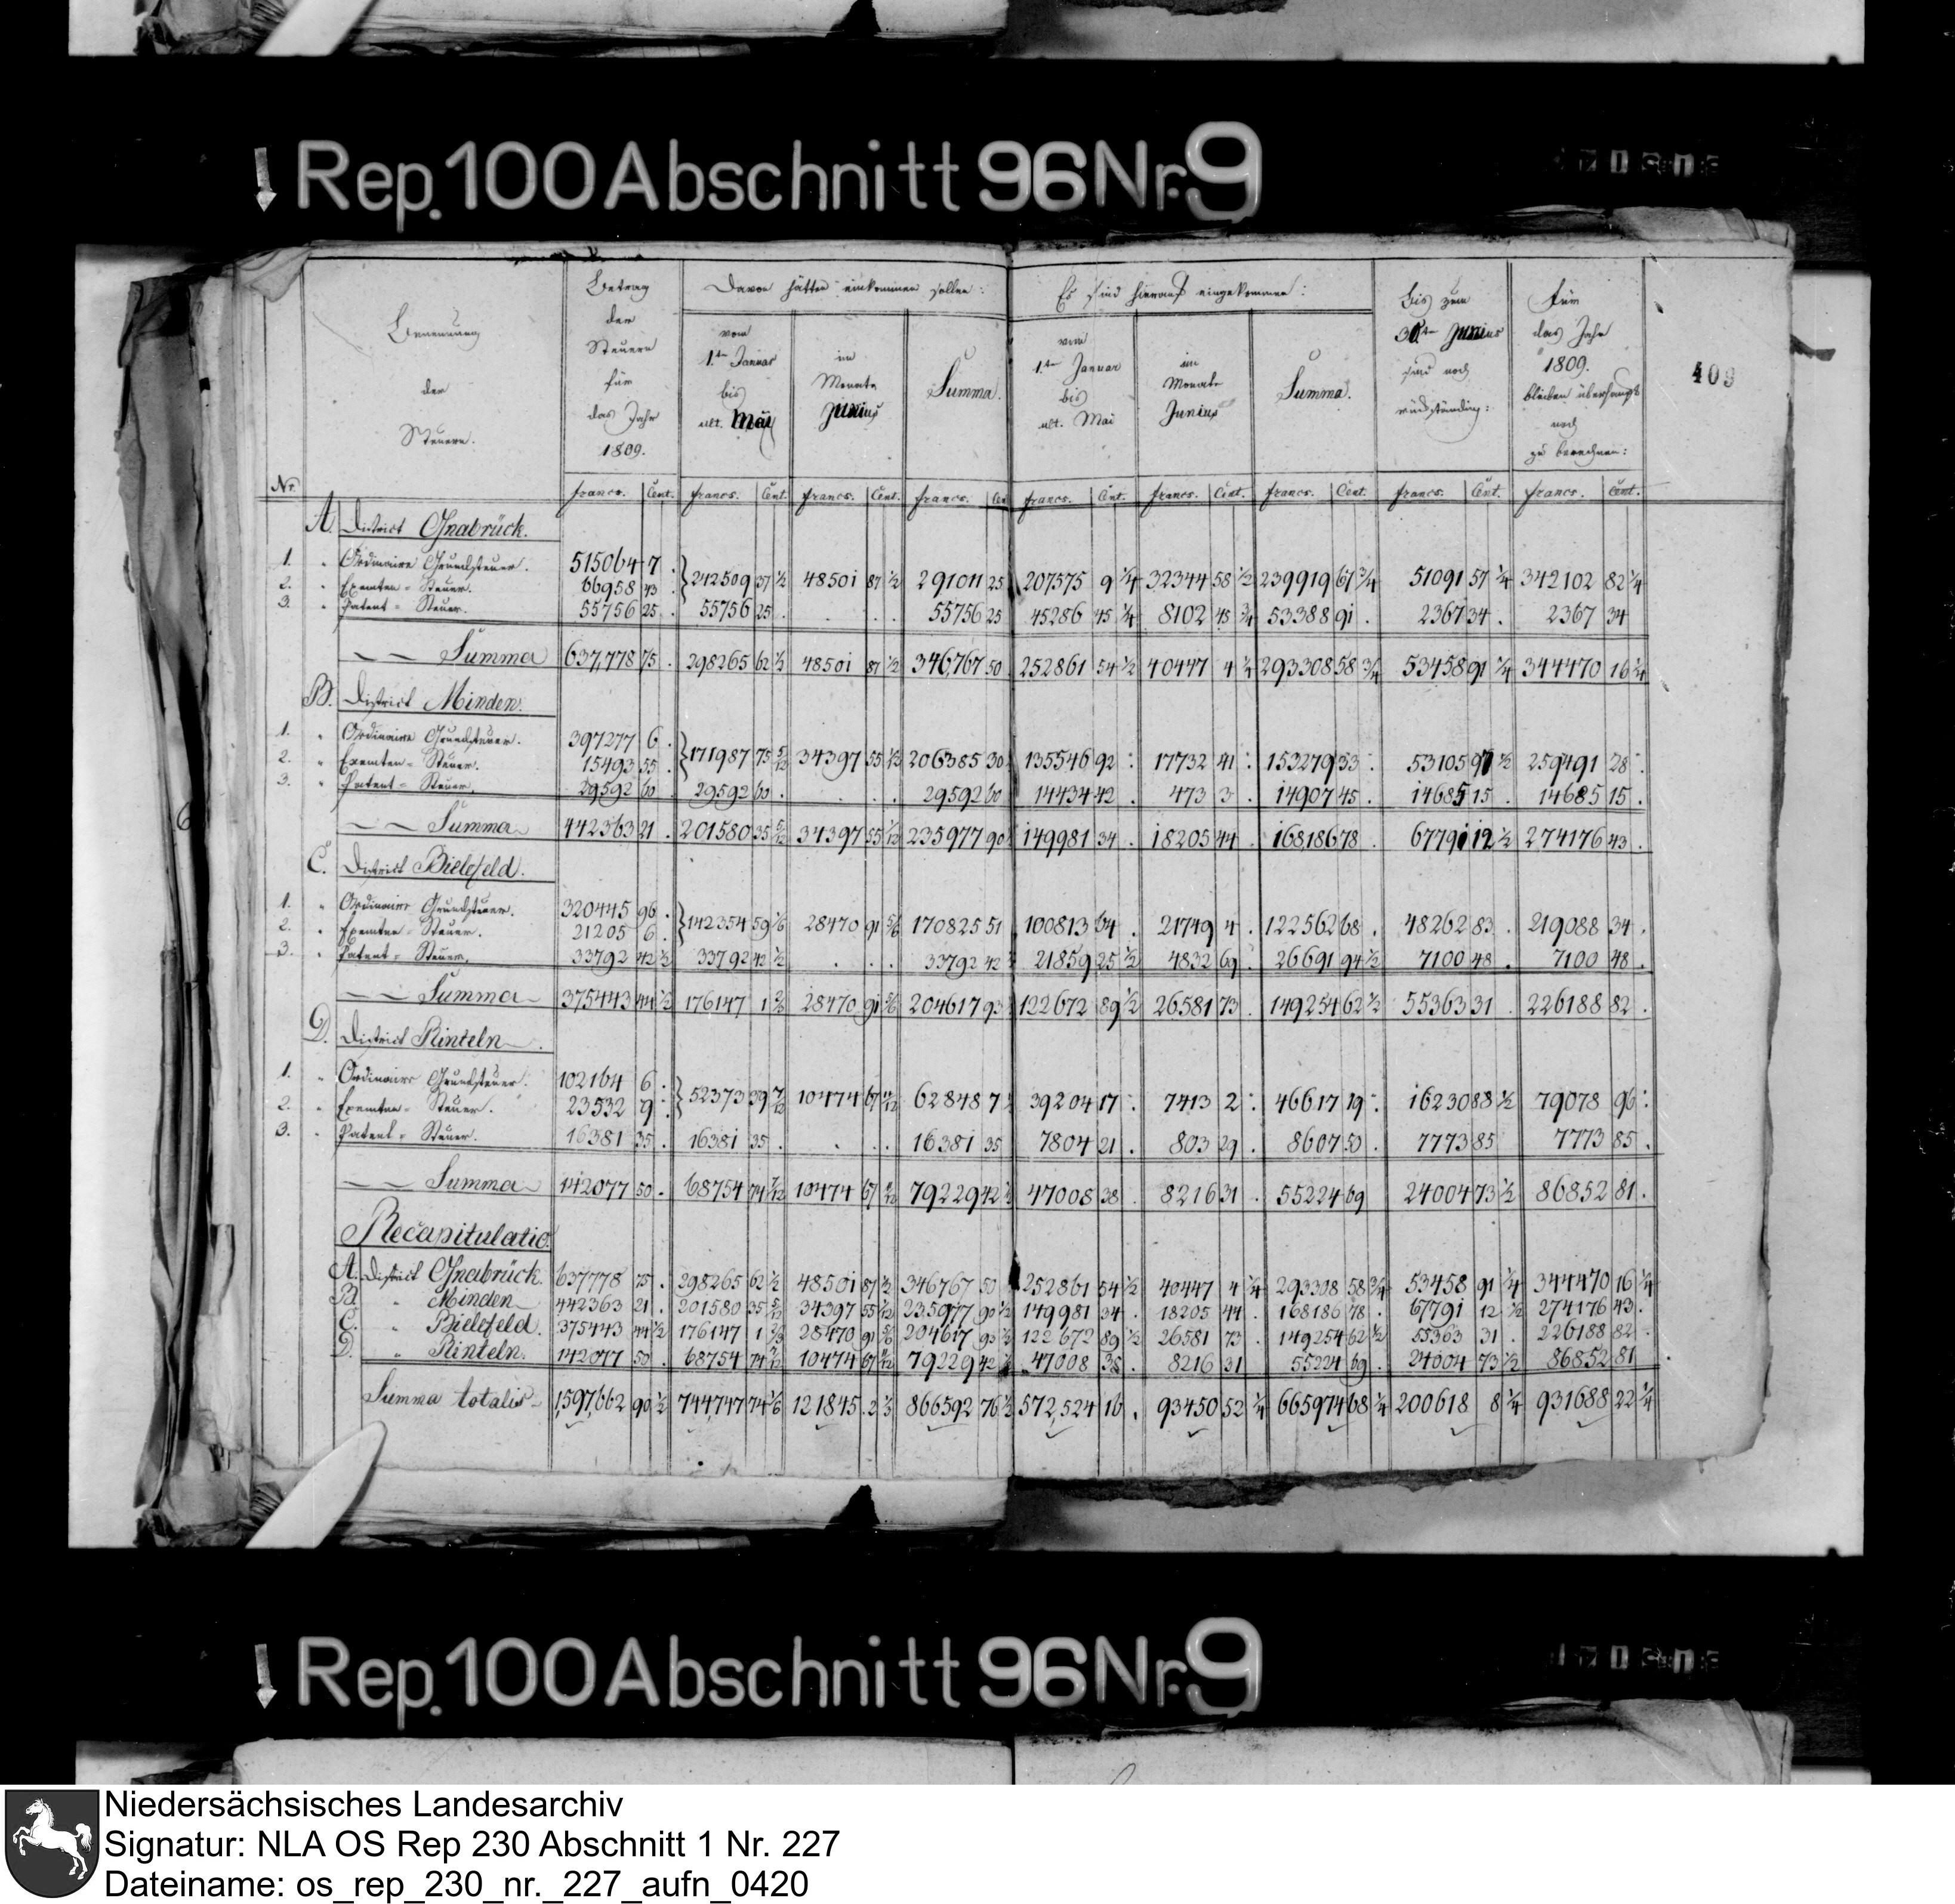 Rep. 100 Abschnitt 96 Nr. 9
409
Benennung der Steuern.
Betrag der Steuern für das Jahr 1809.
Davon hätten einkommen sollen:
vom 1ten Januar bis ult. Mai
im Monate Junius
Summa.
Es sind hierauf eingekommen:
vom 1ten Januar bis ult. Mai
im Monate Junius
Summa.
Bis zum 30ten Junius sind noch rückständig:
Für das Jahr 1809. bleiben überhaupt noch zu berechnen:
Nr. francs. Cent. francs. Cent. francs. Cent. francs. Cen francs. Cent. francs. Cent. francs. Cent. francs. Cent. francs. Cent.
A. District Osnabrück.
1. " Ordinaire Grundsteuer. 515064 7.
2. " Exemten-Steuer. 66958 43 } 242509 37 1/2 48501 87 1/2 291011 25 207575 9 1/4 32344 58 1/2 239919 67 3/4 51091 57 1/4 342102 82 1/4
3. " Patent-Steuer. 55756 25. 55756 25. . . . 55756 25 45286 45 1/4 8102 45 3/4 53388 91. 2367 34. 2367 34
Summa 637,778 75. 298265 62 1/2 48501 87 1/2 346,767 50 252861 54 1/2 40447 4 1/4 293308 58 3/4 53458 91 1/4 344470 16 1/4
B. District Minden.
1. " Ordinaire Grundsteuer. 397277 6.
2. " Exemten-Steuer. 15493 55. } 171987 75 5/12 34397 55 1/12 206385 30 135546 92 17732 41 153279 33 53105 97 1/2 259491 28
3. " Patent-Steuer. 29592 60 29592 60. . . . 29592 60 14434 42. 473 3. 14907 45. 14685 15. 14685 15.
Summa 442363 21. 201580 35 5/12 34397 55 1/12 235977 90 149981 34. 18205 44. 168,186 78. 67791 12 1/2 274176 43.
C. District Bielefeld.
1. " Ordinaire Grundsteuer. 320445 96.
2. " Exemten-Steuer. 21205 6. } 142354 59 1/6 28470 91 5/6 170825 51 100813 64. 21749 4. 122562 68. 48262 83. 219088 34.
3. " Patent-Steuer. 33792 42 1/2 33792 42 1/2 . . . 33792 42 21859 25 1/2 4832 69. 26691 94 1/2 7100 48. 7100 48.
Summa 375443 44 1/2 176147 1 2/3 28470 91 5/6 204617 93 122672 89 1/2 26581 73. 149254 62 1/2 55363 31. 226188 82.
D. District Rinteln.
1. " Ordinaire Grundsteuer. 102164 6.
2. " Exemten-Steuer. 23532 9. } 52373 39 7/12 10474 67 62848 7 39204 17 7413 2 46617 19 16230 88 1/2 79078 96
3. " Patent-Steuer. 16381 35. 16381 35. . . . 16381 35 7804 21. 803 29. 8607 50. 7773 85 7773 85.
Summa 142077 50. 68754 74 7/12 10474 67 79229 42 47008 38. 8216 31. 55224 69 24004 73 1/2 86852 81.
Recapitulatio.
A. District Osnabrück. 637778 75. 298265 62 1/2 48501 87 1/2 346767 50 252861 54 1/2 40447 4 1/4 293308 58 3/4 53458 91 1/4 344470 16 1/4
B. " Minden 442363 21. 201580 35 5/12 34397 55 1/12 235977 90 1/2 149981 34. 18205 44. 168186 78. 67791 12 1/2 274176 43.
C. " Bielefeld. 375443 44 1/2 176147 1 2/3 28470 91 5/6 204617 93 1/2 122672 89 1/2 26581 73. 149254 62 1/2 55363 31. 226188 82.
D. " Rinteln. 142077 50. 68754 74 7/12 10474 67 79229 42 47008 38. 8216 31 55224 69. 24004 73 1/2 86852 81
Summa totalis 1,597,662 90 1/2 744,747 74 1/6 121845 2 866592 76 1/2 572,524 16. 93450 52 1/4 665974 68 1/4 200618 8 1/4 931688 22 1/4
Rep. 100 Abschnitt 96 Nr. 9
Niedersächsisches Landesarchiv
Signatur: NLA OS Rep 230 Abschnitt 1 Nr. 227
Dateiname: os_rep_230_nr._227_aufn_0420